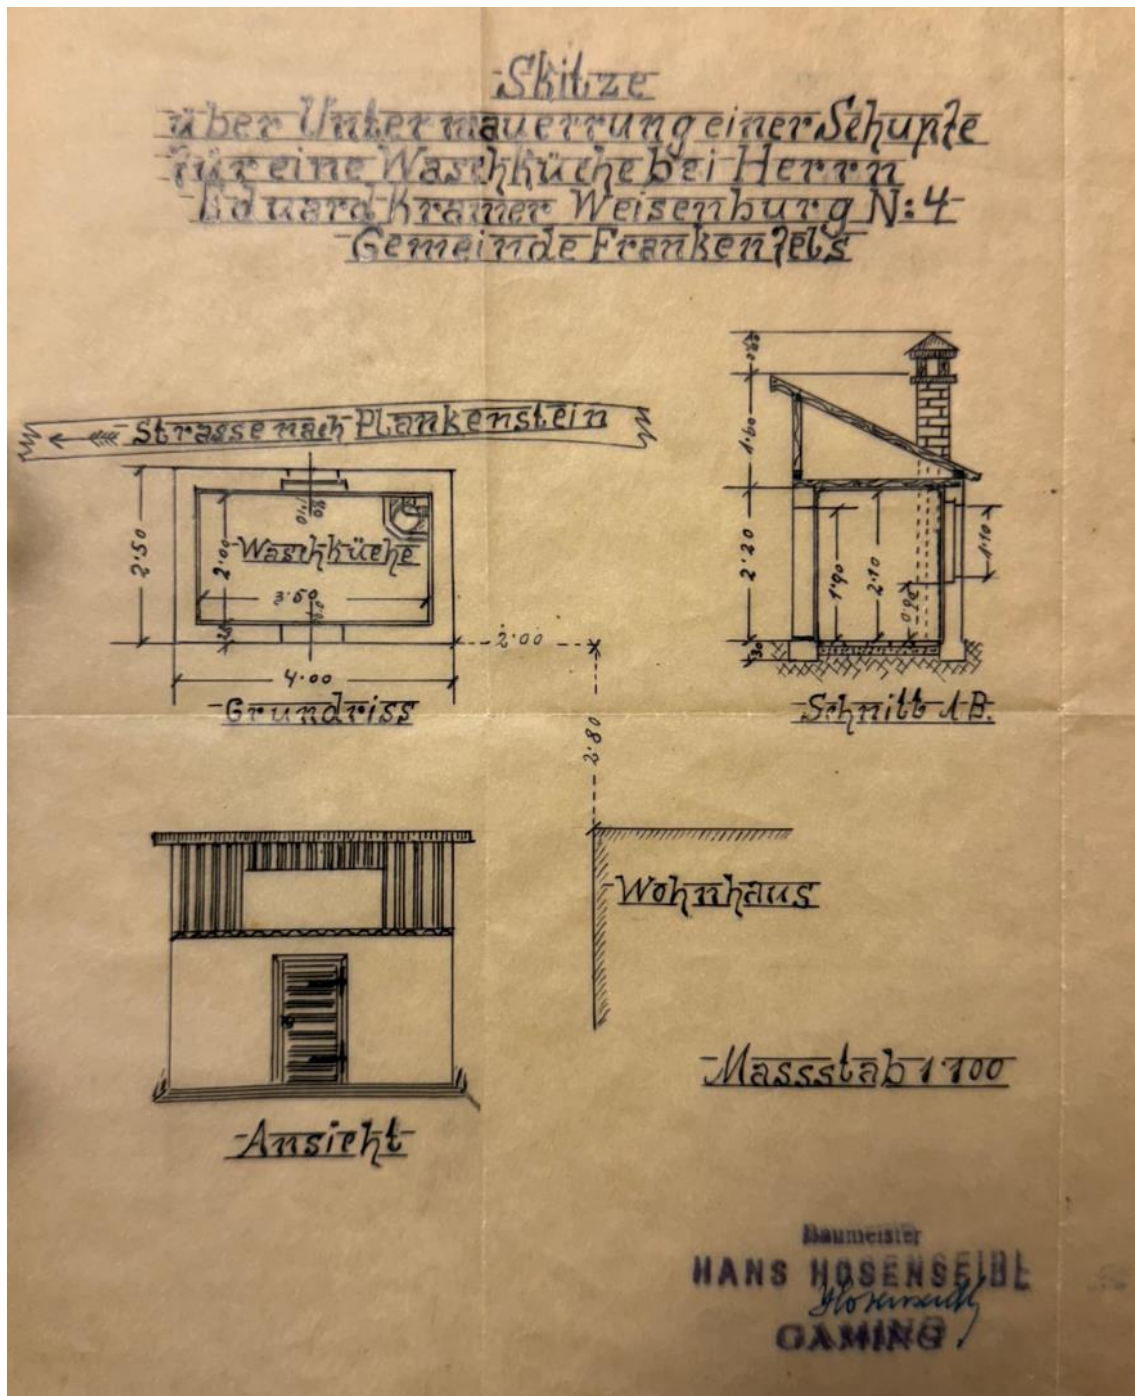 Skitze
über Untermauerrung einer Schupfe
für eine Waschküche bei Herrn
Eduard Kramer Weisenburg N:4
Gemeinde Frankenfels
Strasse nach Plankenstein
2·50
2·00
Waschküche
3·50
4·00
2·00
Grundriss
2·80
1·60
2·20
30
1·90
2·10
1·10
Schnitt A-B.
Wohnhaus
Ansicht
Massstab 1:100
Baumeister
HANS HOSENSEIDL
GAMING